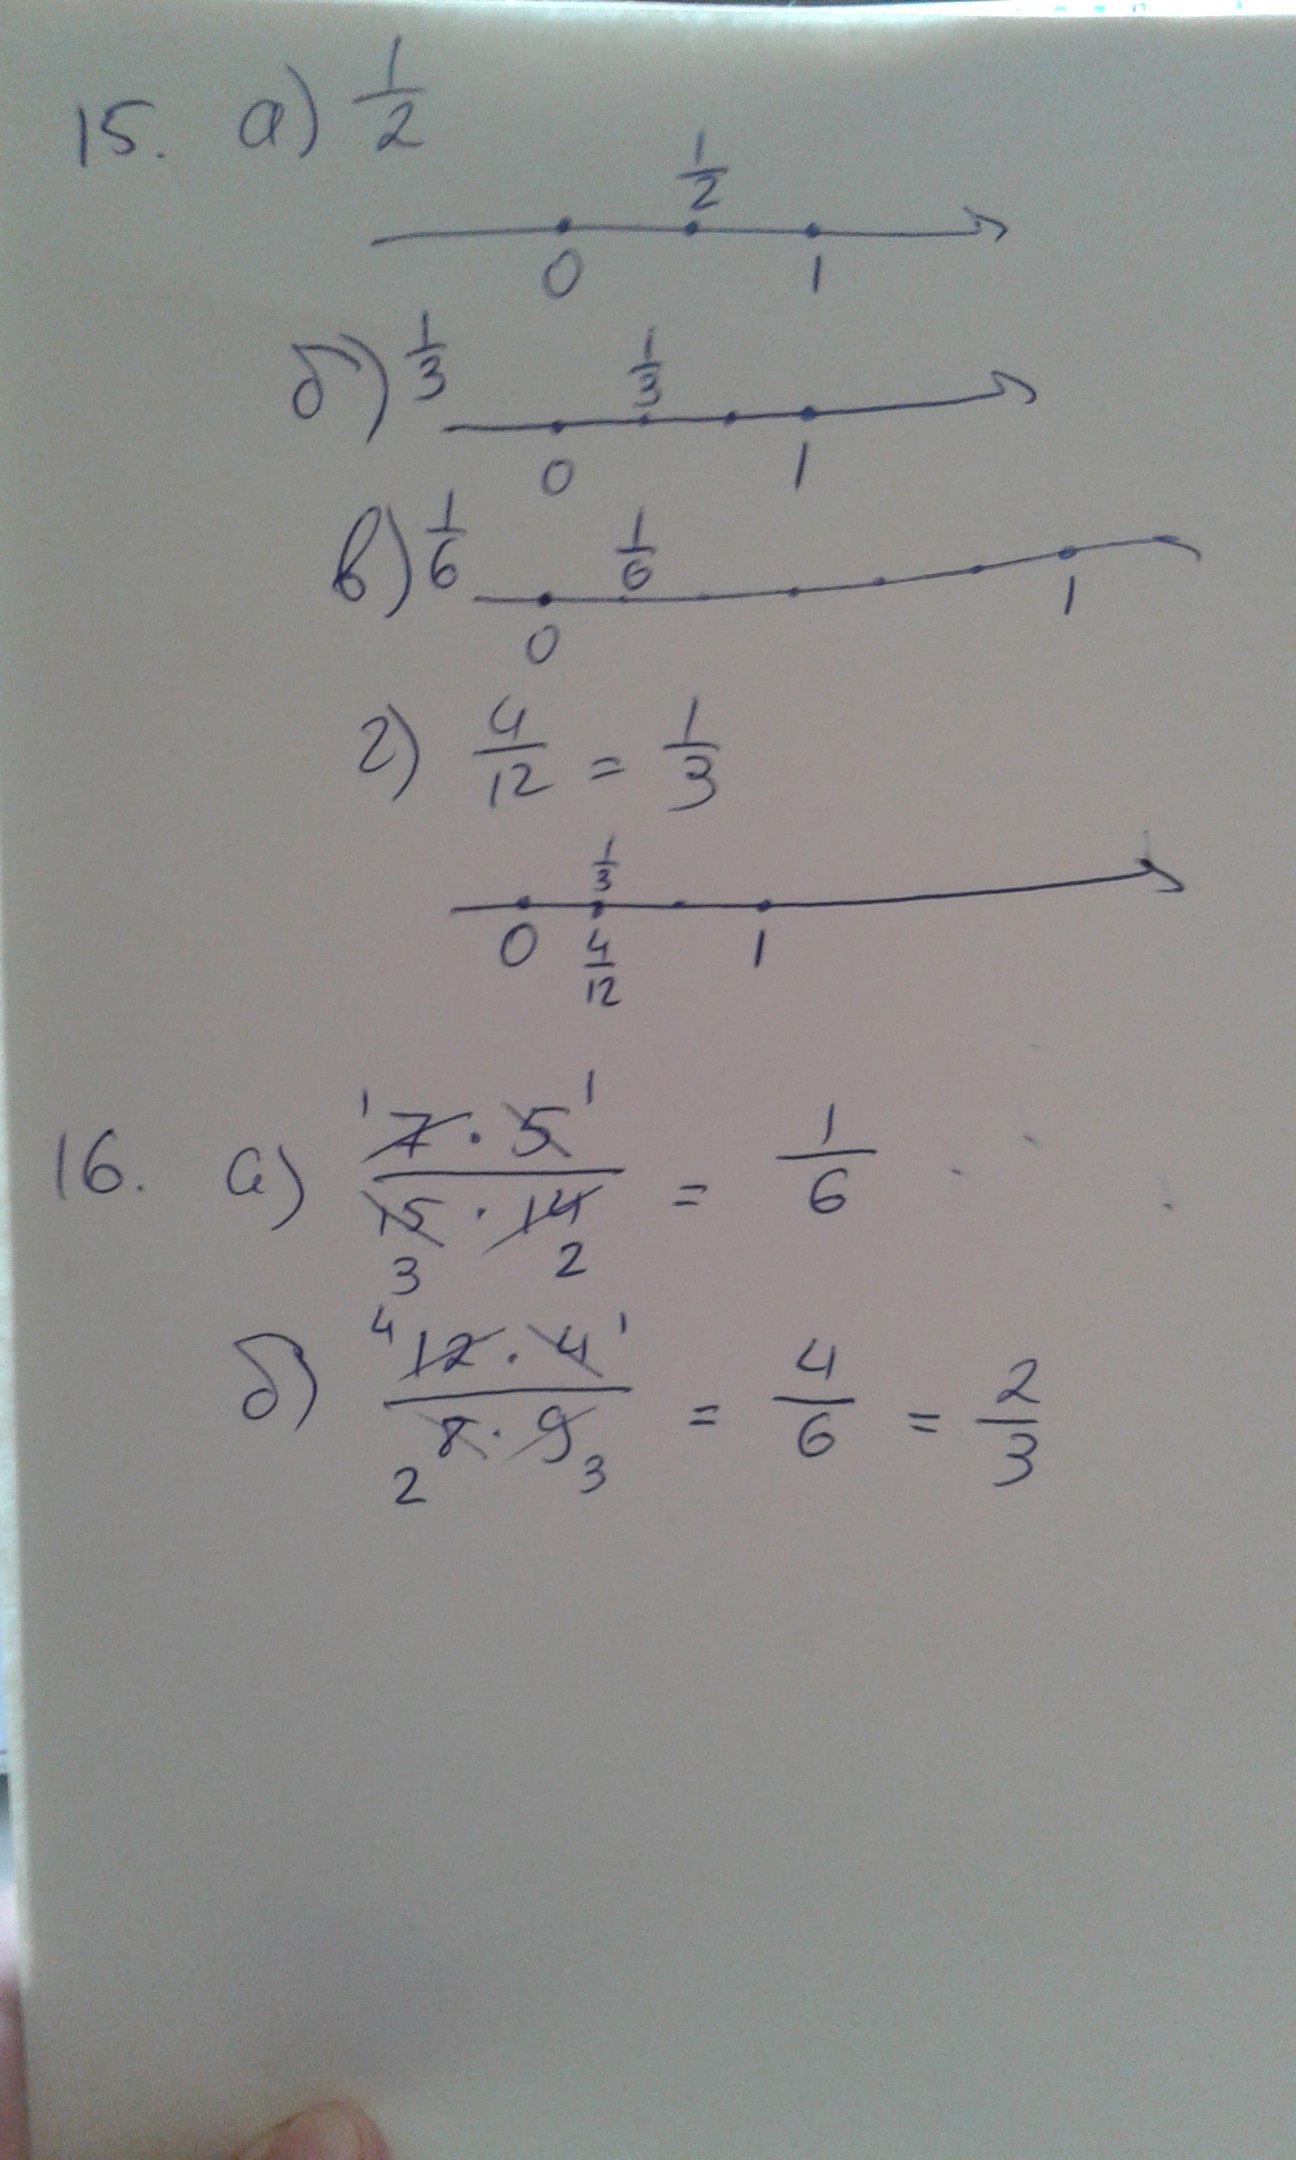 15. а) 1/2
1/2
0 1
б) 1/3
1/3
0 1
в) 1/6
1/6
0 1
г) 4/12 = 1/3
1/3
0 4/12 1
16. а) 1 7 · 5 1 / 15 · 14 = 1/6
3 2
б) 4 12 · 4 1 / 8 · 9 = 4/6 = 2/3
2 3